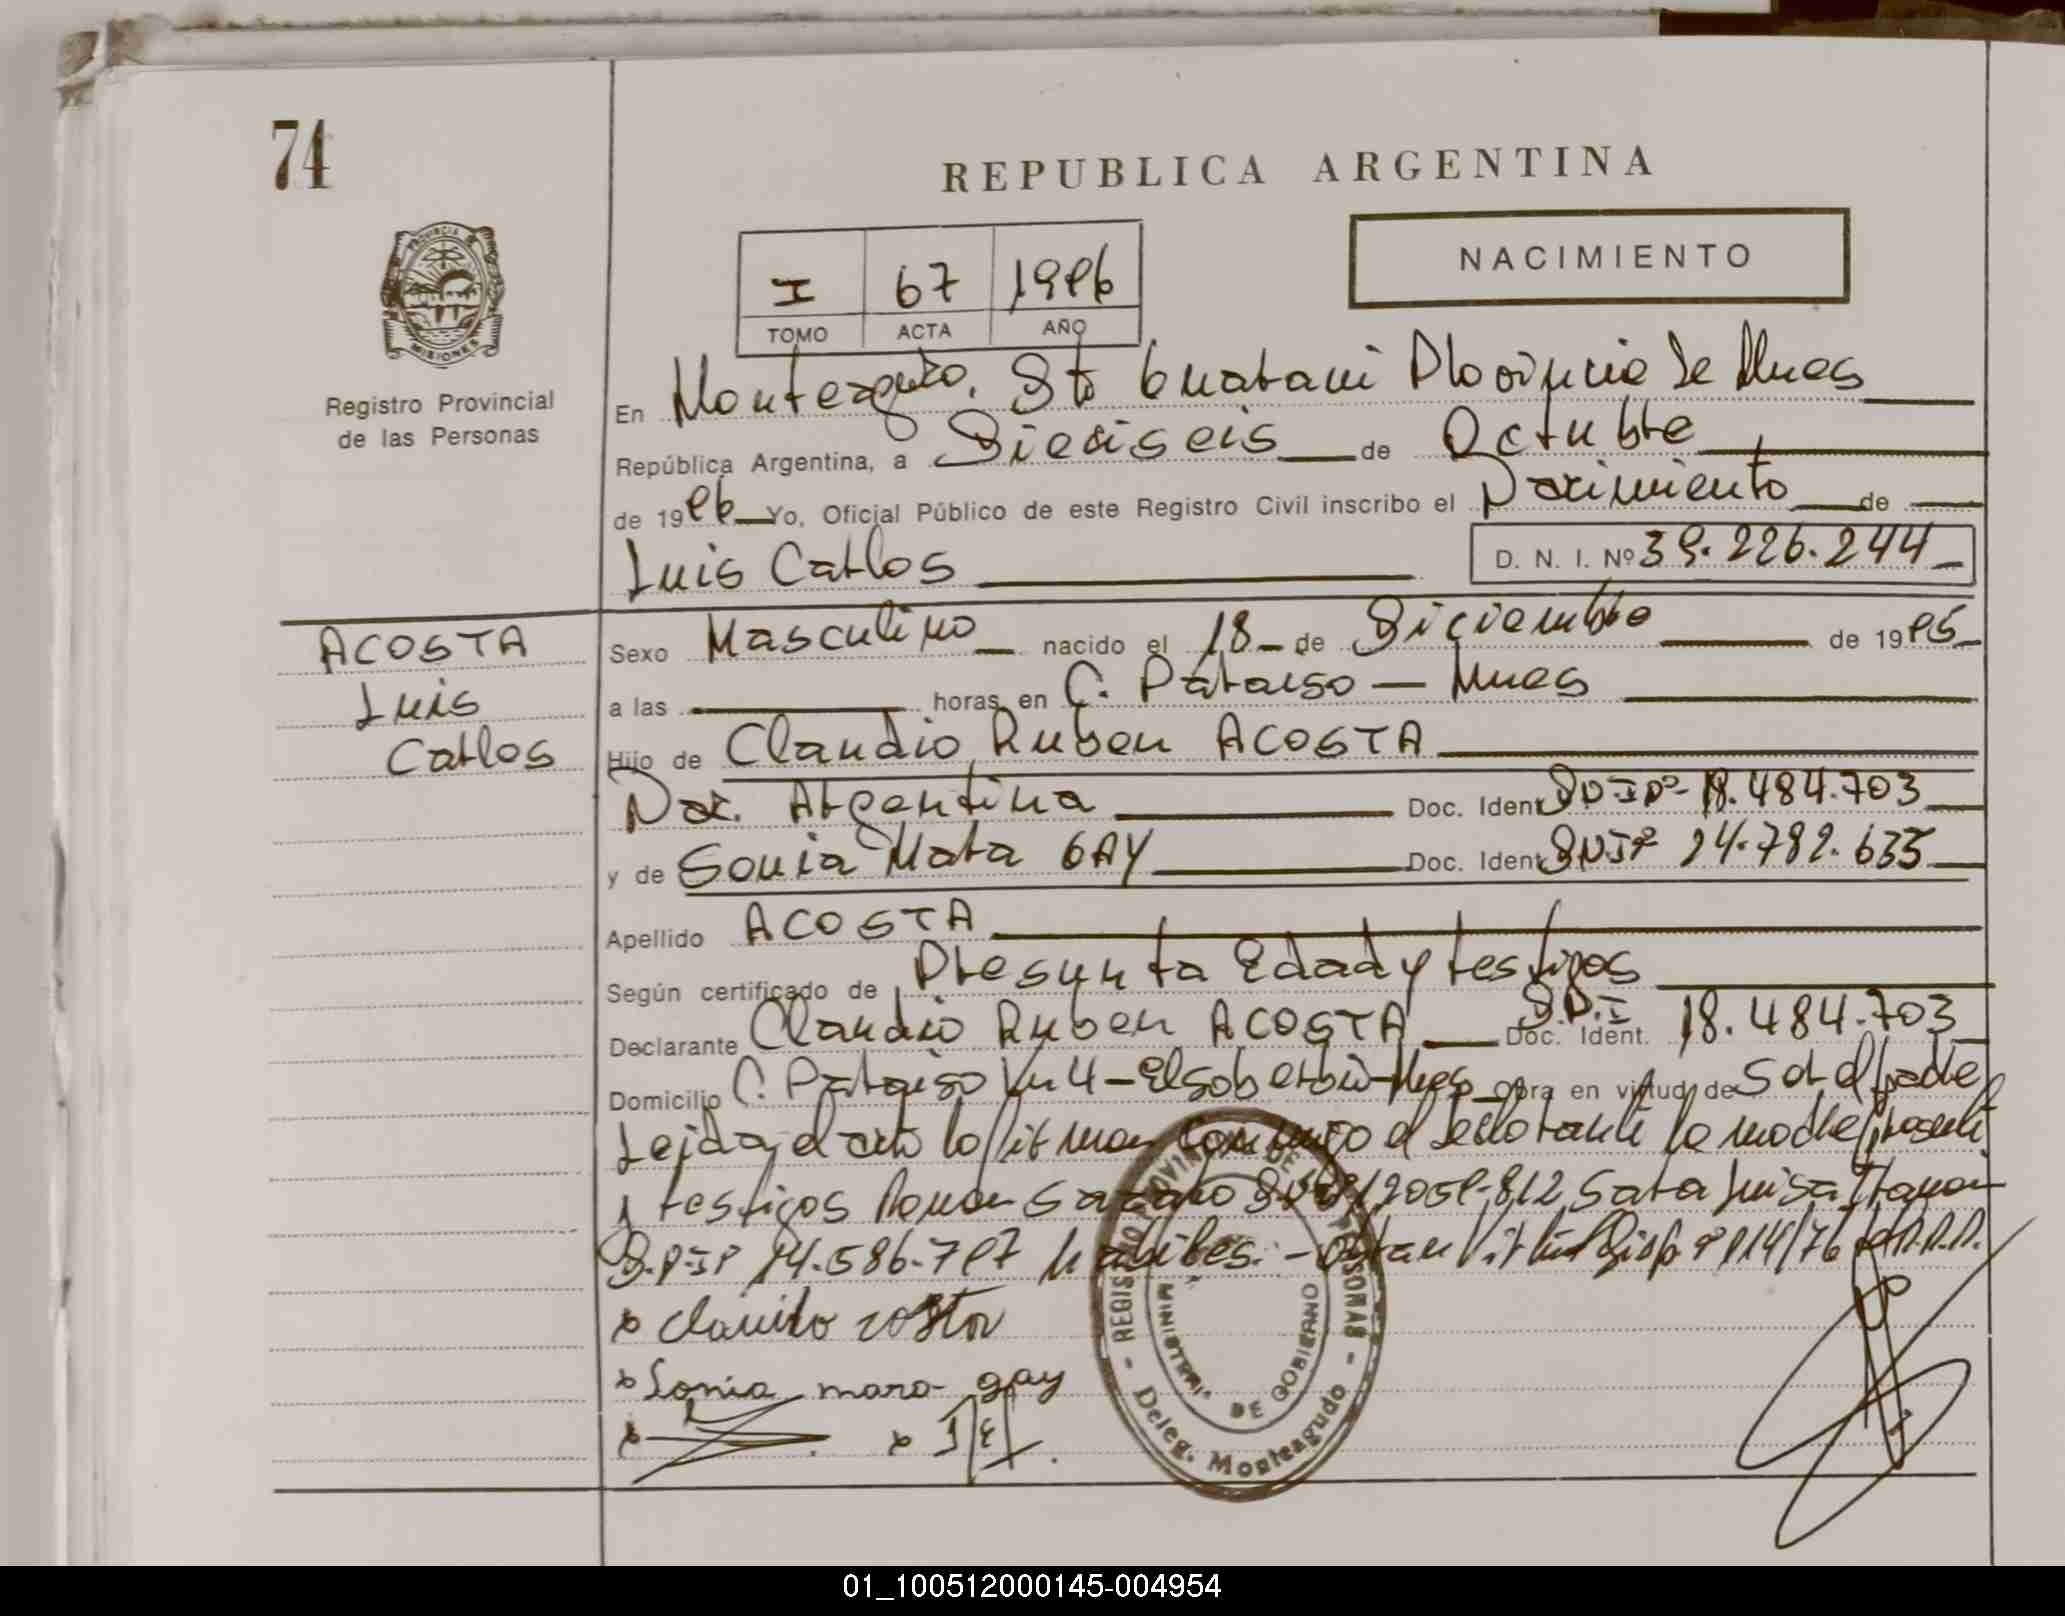 74
REPUBLICA ARGENTINA
NACIMIENTO
I 67 1996
TOMO ACTA AÑO
PROVINCIA DE
MISIONES
Registro Provincial
de las Personas
En Monteagudo. Dto Guarani Provincia de Mnes
República Argentina, a Dieciseis de Octubre
de 1996 Yo, Oficial Público de este Registro Civil inscribo el Nacimiento de
Luis Carlos D. N. I. Nº 39.226.244
ACOSTA
Luis
Carlos
Sexo Masculino nacido el 18 de Diciembre de 1995
a las horas en C. Paraiso - Mnes
Hijo de Claudio Ruben ACOSTA
Nac. Argentina Doc. Ident DNI Nº 18.484.703
y de Sonia Mara GAY Doc. Ident DNIº 24.782.635
Apellido ACOSTA
Según certificado de Presunta Edad y testigos
Declarante Claudio Ruben ACOSTA Doc. Ident. D.N.I 18.484.703
Domicilio C. Paraiso Km 4 - El soberbio - Mnes obra en virtud de Ser el padre
Leida el acta la firman conmigo el declarante la madre presente
y testigos Ramon 812 Sara Luisa
D.N.Iº 14.586.797 habiles. - 14/76
x claudio costa
x Sonia mara gay
x x
REGISTRO PROVINCIAL DE LAS PERSONAS
MINISTERIO DE GOBIERNO
Deleg. Monteagudo
01_100512000145-004954